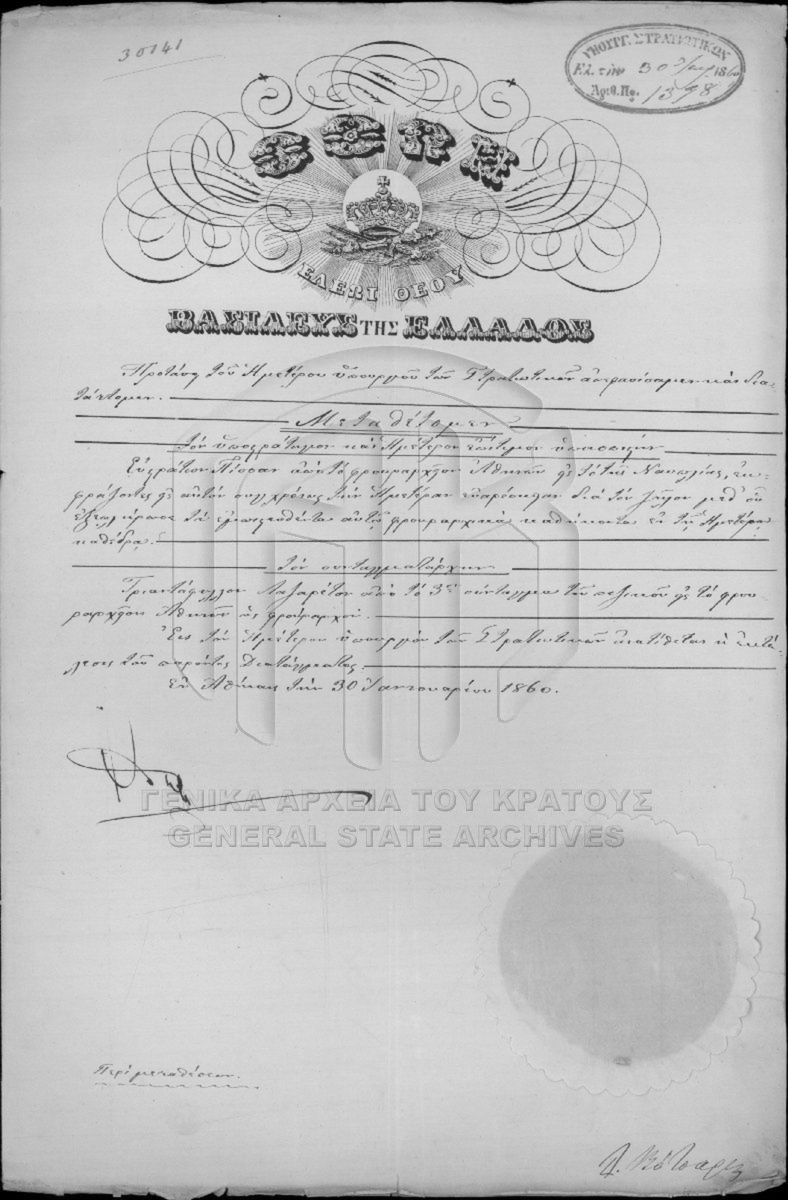 30141
ΥΠΟΥΡΓ. ΣΤΡΑΤΙΩΤΙΚΩΝ
Ἐλ. τὴν 30 1860
Ἀριθ. Πρ. 1398
ΟΘΩΝ
ΕΛΕΩΙ ΘΕΟΥ
ΒΑΣΙΛΕΥΣ ΤΗΣ ΕΛΛΑΔΟΣ
Προτάσει τοῦ Ἡμετέρου ὑπουργοῦ τῶν Στρατιωτικῶν ἀπεφασίσαμεν καὶ δια-
τάττομεν.
Μεταθέτομεν
Τὸν ὑποστράτηγον καὶ Ἡμέτερον ἐπίτιμον ὑπασπιστὴν
Εὐστράτιον Πίσσαν ἀπὸ τὸ φρουραρχεῖον Ἀθηνῶν εἰς τὸ τῆς Ναυπλίας, ἐκ-
φράζοντες εἰς αὐτὸν συγχρόνως τὴν Ἡμετέραν εὐαρέσκειαν διὰ τὸν ζῆλον μεθ' οὗ
ἐξεπλήρωσε τὰ ἐμπιστευθέντα αὐτῷ φρουραρχικὰ καθήκοντα ἐν τῇ Ἡμετέρᾳ
καθέδρᾳ.
Τὸν συνταγματάρχην
Τριαντάφυλλον Λαζαρέτον ἀπὸ τὸ 3ον σύνταγμα τοῦ πεζικοῦ εἰς τὸ φρου-
ραρχεῖον Ἀθηνῶν ὡς φρούραρχον.
Εἰς τὸν Ἡμέτερον ὑπουργὸν τῶν Στρατιωτικῶν ἀνατίθεται ἡ ἐκτέ-
λεσις τοῦ παρόντος Διατάγματος.
Ἐν Ἀθήναις τὴν 30 Ἰαννουαρίου 1860.
ΓΕΝΙΚΑ ΑΡΧΕΙΑ ΤΟΥ ΚΡΑΤΟΥΣ
GENERAL STATE ARCHIVES
Περὶ μεταθέσεων.
Δ. Βότσαρης